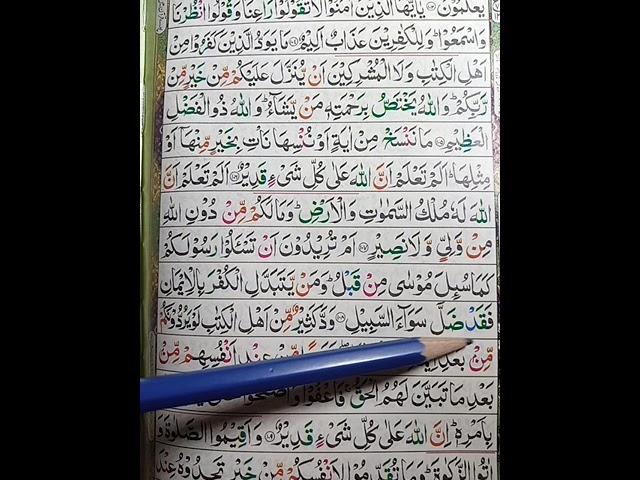 يَعْلَمُوْنَ يٰٓاَيُّهَا الَّذِيْنَ اٰمَنُوْا لَا تَقُوْلُوْا رَاعِنَا وَقُوْلُوا انْظُرْنَا
وَاسْمَعُوْا ؕ وَلِلْكٰفِرِيْنَ عَذَابٌ اَلِيْمٌ ۝۱۰۴ مَا يَوَدُّ الَّذِيْنَ كَفَرُوْا مِنْ
اَهْلِ الْكِتٰبِ وَلَا الْمُشْرِكِيْنَ اَنْ يُّنَزَّلَ عَلَيْكُمْ مِّنْ خَيْرٍ مِّنْ
رَّبِّكُمْ ؕ وَاللّٰهُ يَخْتَصُّ بِرَحْمَتِهٖ مَنْ يَّشَآءُ ؕ وَاللّٰهُ ذُو الْفَضْلِ
الْعَظِيْمِ ۝۱۰۵ مَا نَنْسَخْ مِنْ اٰيَةٍ اَوْ نُنْسِهَا نَاْتِ بِخَيْرٍ مِّنْهَاۤ اَوْ
مِثْلِهَا ؕ اَلَمْ تَعْلَمْ اَنَّ اللّٰهَ عَلٰى كُلِّ شَىْءٍ قَدِيْرٌ ۝۱۰۶ اَلَمْ تَعْلَمْ اَنَّ
اللّٰهَ لَهٗ مُلْكُ السَّمٰوٰتِ وَالْاَرْضِ ؕ وَمَا لَكُمْ مِّنْ دُوْنِ اللّٰهِ
مِنْ وَّلِيٍّ وَّلَا نَصِيْرٍ ۝۱۰۷ اَمْ تُرِيْدُوْنَ اَنْ تَسْـَٔلُوْا رَسُوْلَكُمْ
كَمَا سُئِلَ مُوْسٰى مِنْ قَبْلُ ؕ وَمَنْ يَّتَبَدَّلِ الْكُفْرَ بِالْاِيْمَانِ
فَقَدْ ضَلَّ سَوَآءَ السَّبِيْلِ ۝۱۰۸ وَدَّ كَثِيْرٌ مِّنْ اَهْلِ الْكِتٰبِ لَوْ يَرُدُّوْنَكُمْ
مِّنْۢ بَعْدِ عِنْدِ اَنْفُسِهِمْ مِّنْۢ
بَعْدِ مَا تَبَيَّنَ لَهُمُ الْحَقُّ ۚ فَاعْفُوْا وَاصْفَحُوْا
بِاَمْرِهٖ ؕ اِنَّ اللّٰهَ عَلٰى كُلِّ شَىْءٍ قَدِيْرٌ ۝۱۰۹ وَاَقِيْمُوا الصَّلٰوةَ وَ
اٰتُوا الزَّكٰوةَ ؕ وَمَا تُقَدِّمُوْا لِاَنْفُسِكُمْ مِّنْ خَيْرٍ تَجِدُوْهُ عِنْدَ